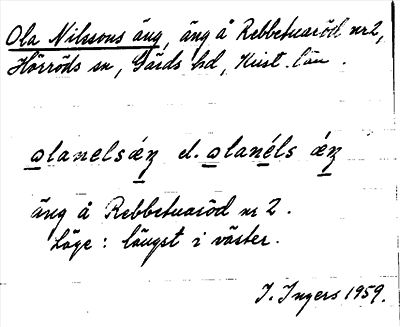 Ola Nilssons äng, äng å Rebbetuaröd nr 2,
Hörröds sn, Gärds hd, Krist. län.
olanelsǽŋ el. olanéls ǽŋ
äng å Rebbetuaröd nr 2.
Läge: längst i väster.
I. Ingers 1959.